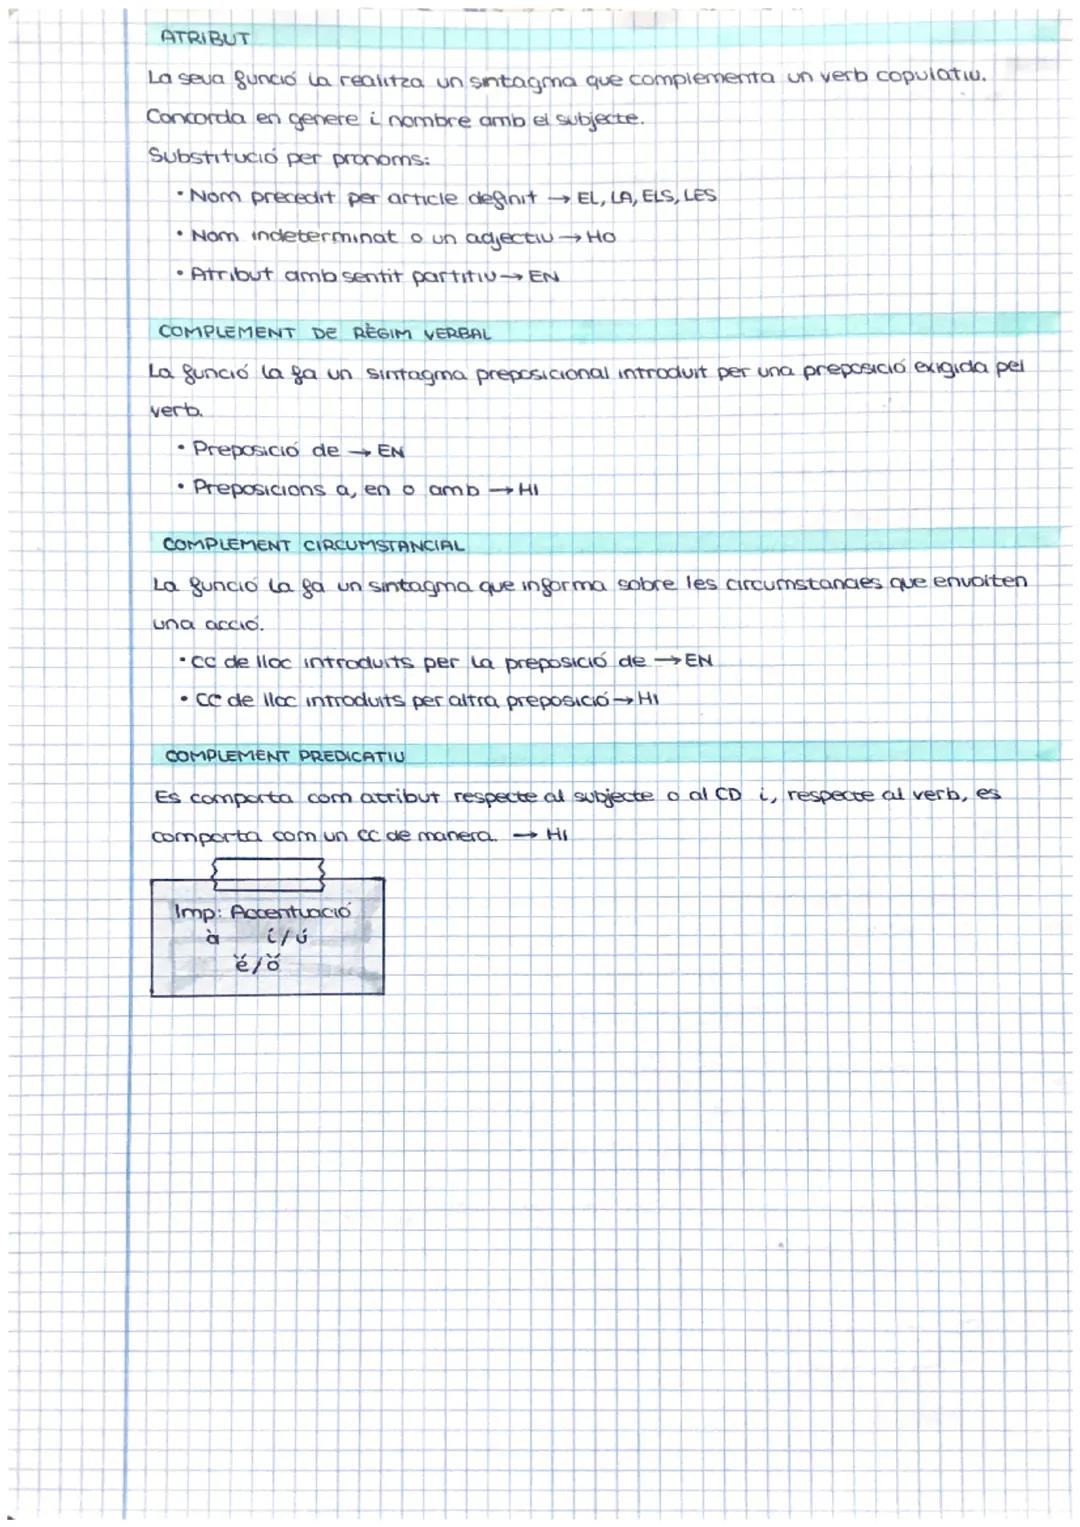 ATRIBUT
La seva funció la realitza un sintagma que complementa un verb copulatiu.
Concorda en genere i nombre amb el subjecte.
Substitució per pronoms:
• Nom precedit per article definit → EL, LA, ELS, LES
• Nom indeterminat o un adjectiu → HO
• Atribut amb sentit partitiu → EN
COMPLEMENT DE RÈGIM VERBAL
La funció la fa un sintagma preposicional introduït per una preposició exigida pel
verb.
• Preposició de → EN
• Preposicions a, en o amb → HI
COMPLEMENT CIRCUMSTANCIAL
La funció la fa un sintagma que informa sobre les circumstancies que envolten
una acció.
• CC de lloc introduïts per la preposició de → EN
• CC de lloc introduïts per altra preposició → HI
COMPLEMENT PREDICATIU
Es comporta com atribut respecte al subjecte o al CD i, respecte al verb, es
comporta com un CC de manera. → HI
Imp: Accentuació
à í/ú
é̀/ó̀